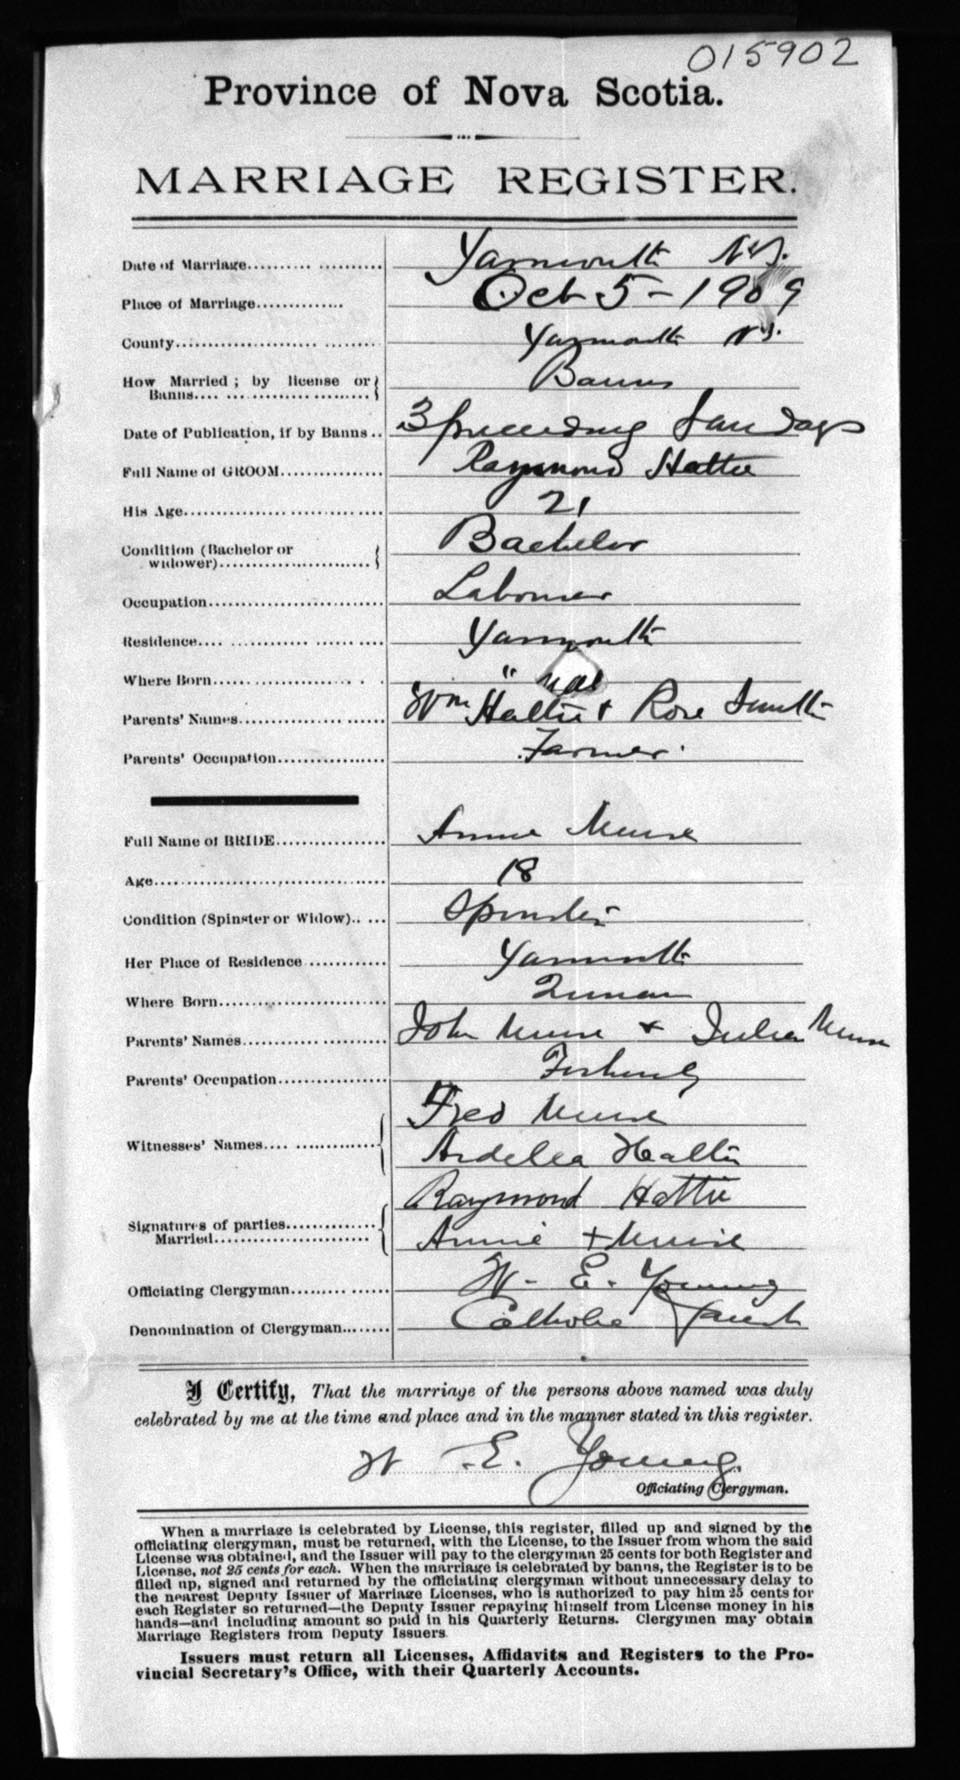 015902
Province of Nova Scotia.
MARRIAGE REGISTER.
Date of Marriage.......... ........... Yarmouth N.S.
Place of Marriage............. Oct 5 - 1909
County.................... .......... ... Yarmouth N.S.
How Married ; by license or Banns.... ... ........... ......... Banns
Date of Publication, if by Banns .. 3 preceeding Sundays
Full Name of GROOM................ Raymond Hattie
His Age................. ........... .... 21
Condition (Bachelor or widower)......................... Bachelor
Occupation............................ Labourer
Residence.... .......... ......... .... Yarmouth
Where Born...................... . . "
Parents' Names...................... Wm Hattie & Rose Smith
Parents' Occupation................. Farmer
Full Name of BRIDE................. Annie Muise
Age..................................... 18
Condition (Spinster or Widow).. .... Spinster
Her Place of Residence ............ Yarmouth
Where Born.......................... Quinan
Parents' Names...................... John Muise & Julia Muise
Parents' Occupation.................
Witnesses' Names.... .............. Fred Muise
Ardelia Hattie
Signatures of parties Married................ Raymond Hattie
Annie + Muise
Officiating Clergyman......... ...... W. E. Young
Denomination of Clergyman........ Catholic Priest
I Certify, That the marriage of the persons above named was duly
celebrated by me at the time and place and in the manner stated in this register.
W. E. Young.
Officiating Clergyman.
When a marriage is celebrated by License, this register, filled up and signed by the
officiating clergyman, must be returned, with the License, to the Issuer from whom the said
License was obtained, and the Issuer will pay to the clergyman 25 cents for both Register and
License, not 25 cents for each. When the marriage is celebrated by banns, the Register is to be
filled up, signed and returned by the officiating clergyman without unnecessary delay to
the nearest Deputy Issuer of Marriage Licenses, who is authorized to pay him 25 cents for
each Register so returned—the Deputy Issuer repaying himself from License money in his
hands—and including amount so paid in his Quarterly Returns. Clergymen may obtain
Marriage Registers from Deputy Issuers
Issuers must return all Licenses, Affidavits and Registers to the Pro-
vincial Secretary's Office, with their Quarterly Accounts.